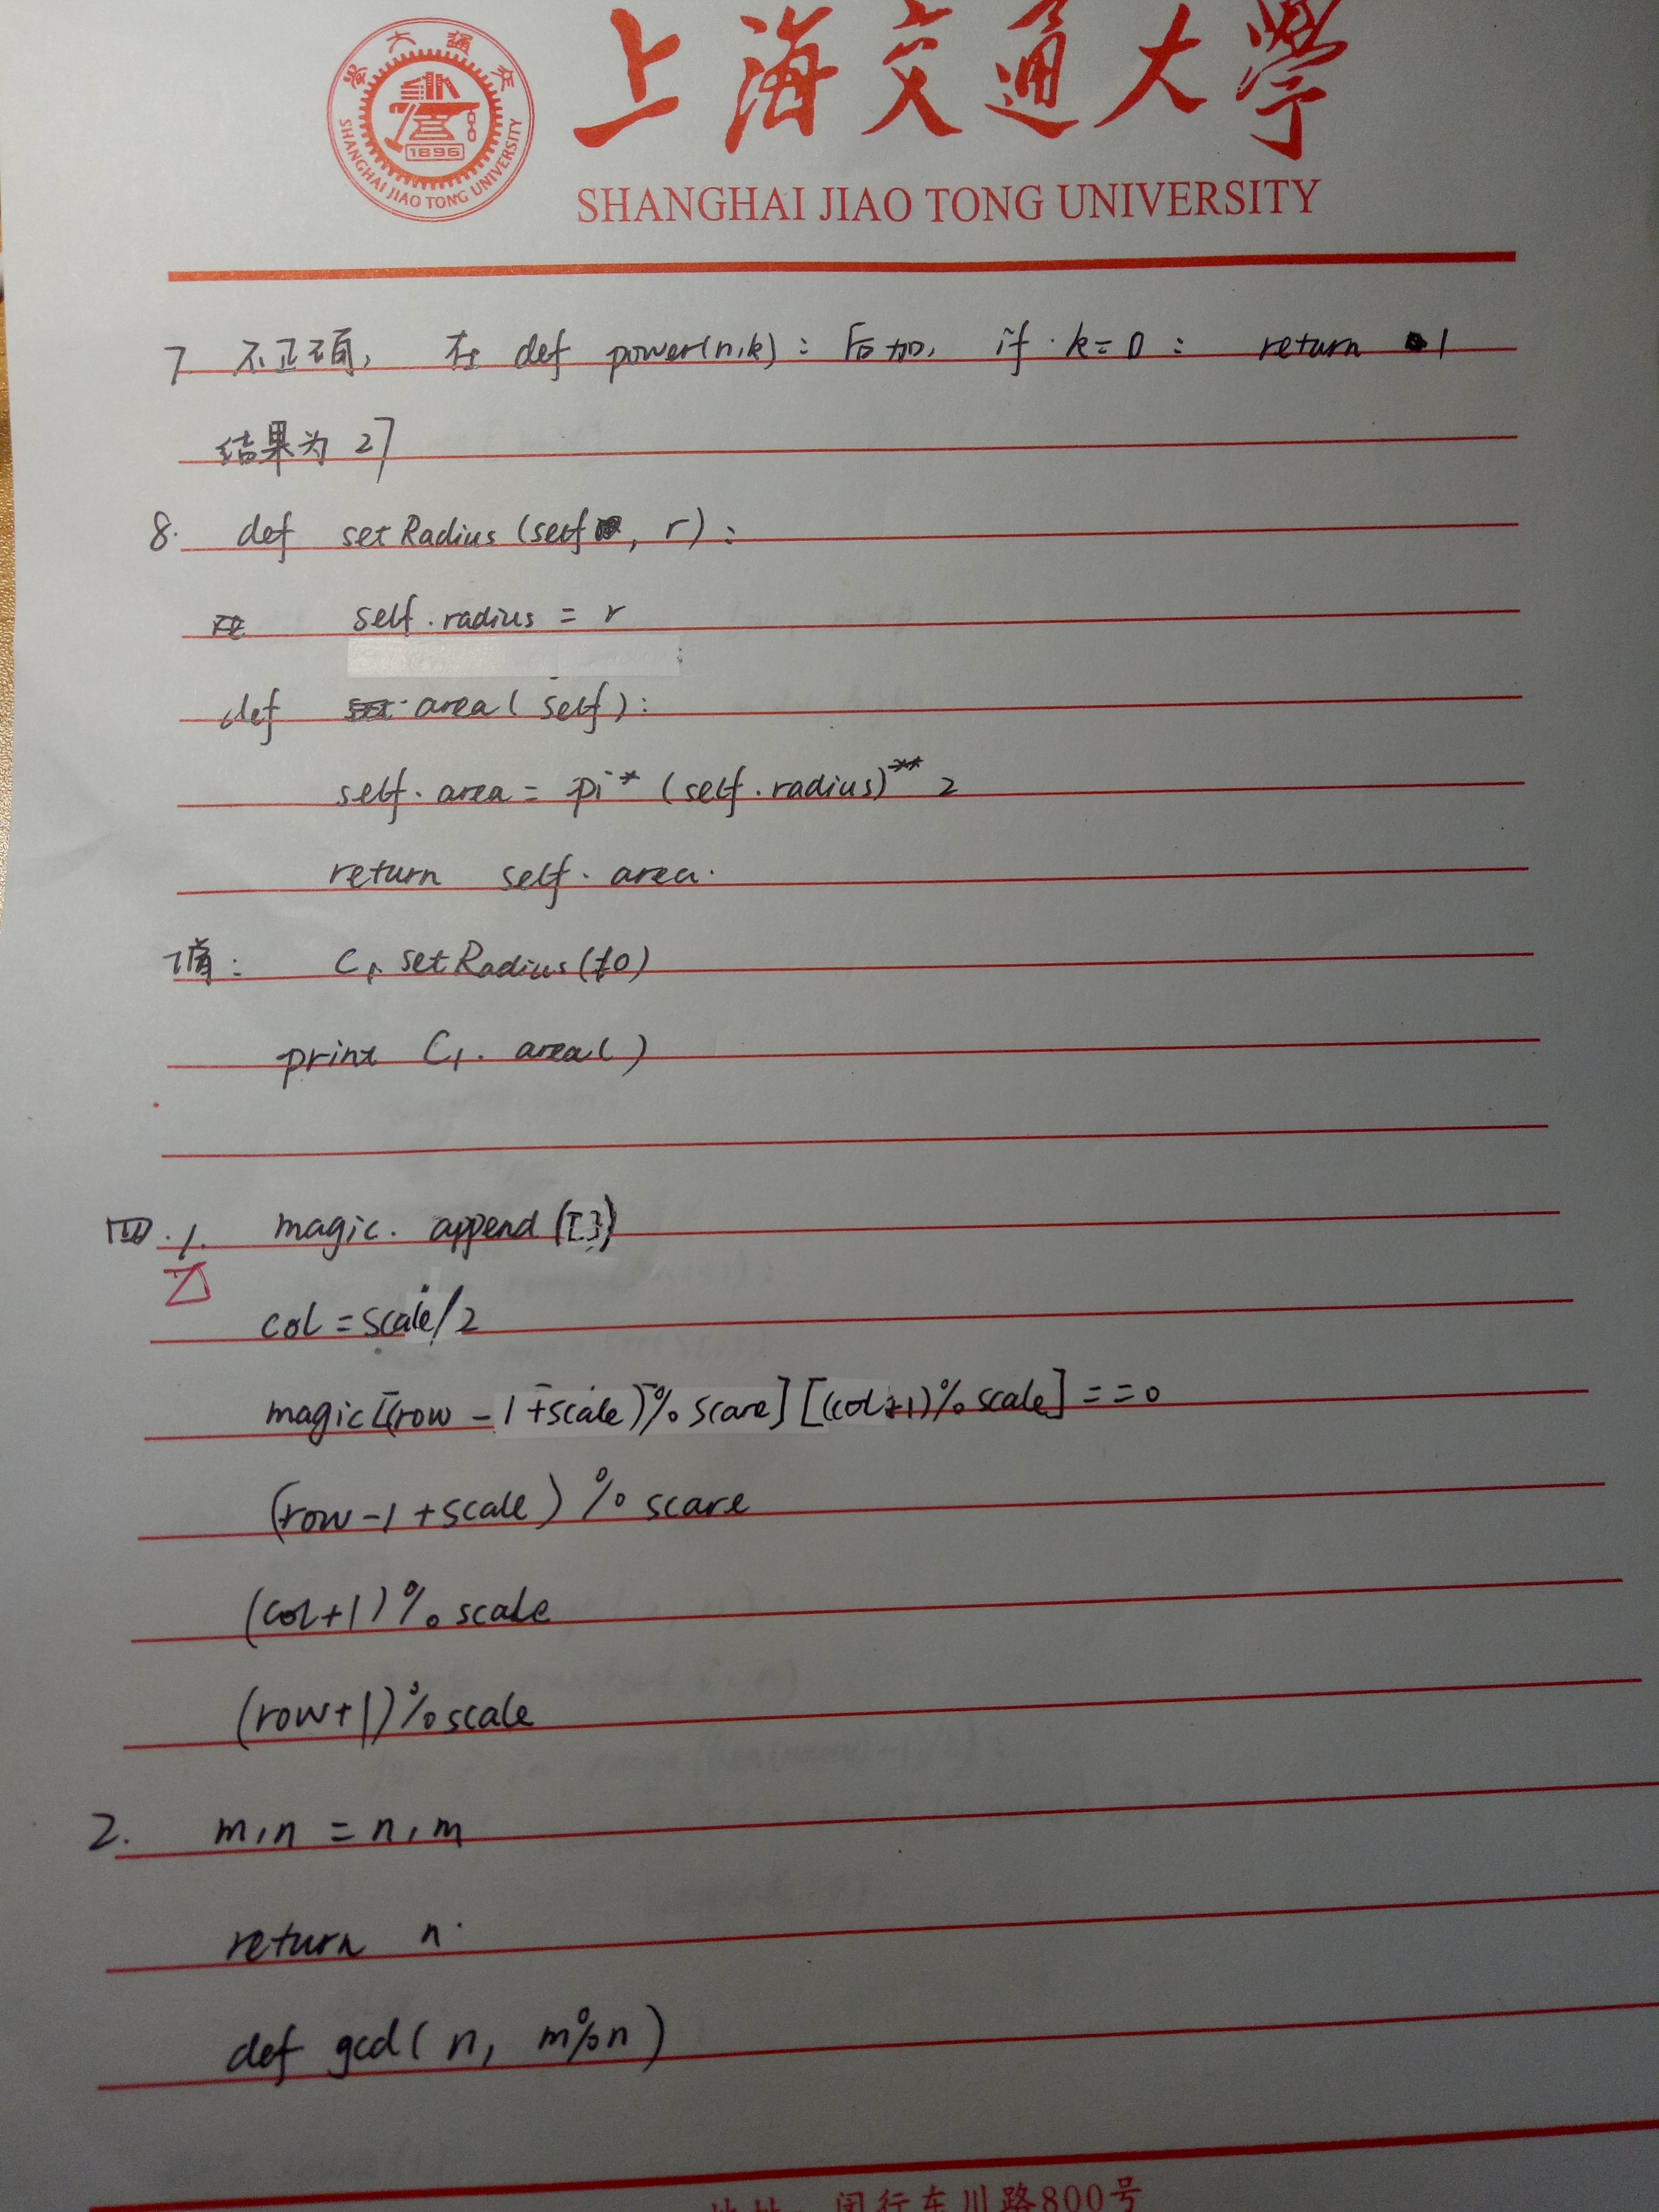 上海交通大學
SHANGHAI JIAO TONG UNIVERSITY
SHANGHAI JIAO TONG UNIVERSITY
1896
7 不正确, 在 def power(n,k): 后加, if k=0: return 1
结果为 27
8. def setRadius(self, r):
self.radius = r
def area(self):
self.area = pi*(self.radius)**2
return self.area.
值: C1 setRadius(10)
print C1. area()
四.1. magic. append([])
col=scale/2
magic[(row-1+scale)%scare][(col+1)%scale]==0
(row-1+scale)%scare
(col+1)%scale
(row+1)%scale
2. m,n = n,m
return n.
def gcd(n, m%n)
地址: 闵行东川路800号